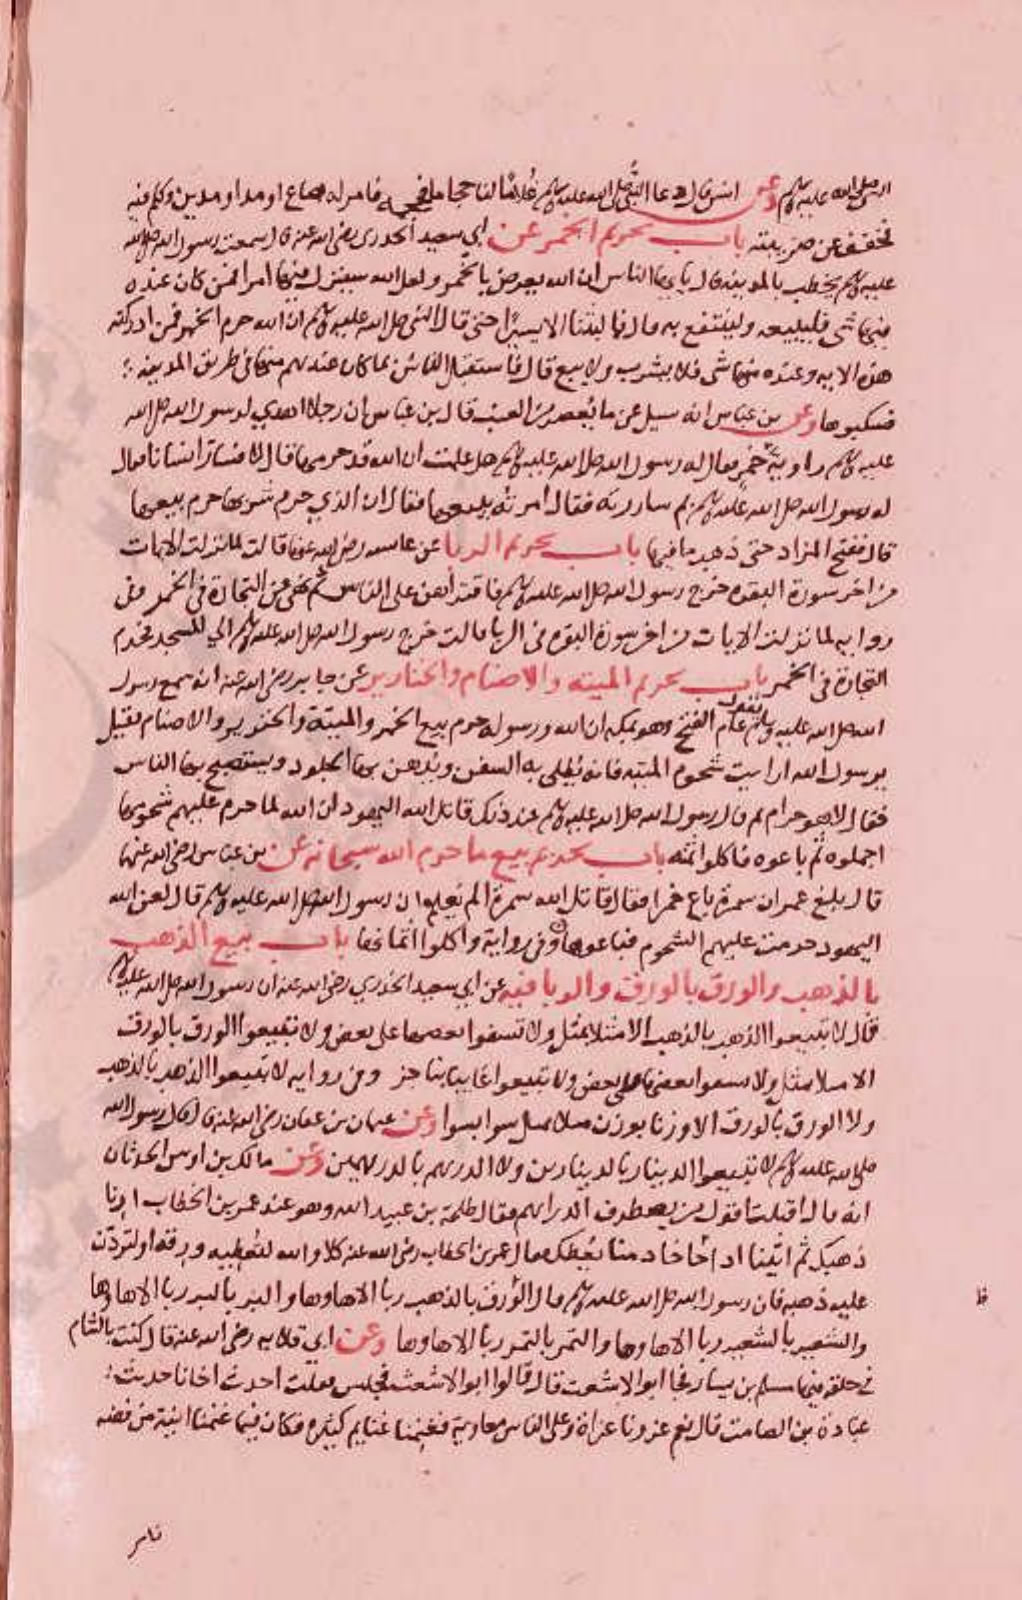 الله صلى الله عليه وسلم وعن انس قال دعا النبي صلى الله عليه وسلم غلاما لنا حجاما فحجمه فامر له بصاع او مد او مدين وكلم فيه
فخفف عن ضريبته باب تحريم الخمر عن ابي سعيد الخدري رضي الله عنه قال سمعت رسول الله صلى الله
عليه وسلم يخطب بالمدينة قال يا ايها الناس ان الله يعرض بالخمر ولعل الله سينزل فيها امرا فمن كان عنده
منها شي فليبيعه ولينتفع به قال فما لبثنا الا يسيرا حتى قال النبي صلى الله عليه وسلم ان الله حرم الخمر فمن ادركته
هذه الايه وعنده منها شي فلا يشرب ولا يبع قال فاستقبل الناس بما كان عندهم منها في طريق المدينه
فسكبوها وعن بن عباس انه سيل عن ما يعصر من العنب قال بن عباس ان رجلا اهدي لرسول الله صلى الله
عليه وسلم راوية خمر فقال له رسول الله صلى الله عليه وسلم هل علمت ان الله قد حرمها قال لا فسار انسانا فقال
له رسول الله صلى الله عليه وسلم بم ساررته فقال امرته ببيعها فقال ان الذي حرم شربها حرم بيعها
قال ففتح المزاد حتى ذهب ما فيها باب تحريم الربا عن عائشه رضي الله عنها قالت لما نزلت الايات
من اخر سورة البقره خرج رسول الله صلى الله عليه وسلم فاقتراهن على الناس ثم نهى عن التجارة في الخمر وفي
روايه لما نزلت الايات من اخر سورة البقره في الربا قالت خرج رسول الله صلى الله عليه وسلم الي المسجد فحرم
التجارة في الخمر باب تحريم الميته والاصنام والخنازير عن جابر رضي الله عنه انه سمع رسول
الله صلى الله عليه وسلم يقول عام الفتح وهو بمكه ان الله ورسوله حرم بيع الخمر والميتة والخنزير والاصنام فقيل
يرسول الله ارايت شحوم الميته فانه يطلى به السفن ويدهن بها الجلود ويستصبح بها الناس
فقال لا هو حرام ثم قال رسول الله صلى الله عليه وسلم عند ذلك قاتل الله اليهود ان الله لما حرم عليهم شحومها
اجملوه ثم باعوه فاكلوا ثمنه باب تحريم بيع ما حرم الله سبحانه عن بن عباس رضي الله عنهما
قال بلغ عمر ان سمرة باع خمرا فقال قاتل الله سمرة الم يعلم ان رسول الله صلى الله عليه وسلم قال لعن الله
اليهود حرمت عليهم الشحوم فباعوها وفي رواية واكلوا اثمانها باب بيع الذهب
بالذهب والورق بالورق والربا فيه عن ابي سعيد الخدري رضي الله عنه ان رسول الله صلى الله عليه وسلم
قال لا تبيعوا الذهب بالذهب الا مثلا بمثل ولا تشفوا بعضها على بعض ولا تبيعوا الورق بالورق
الا مثلا بمثل ولا تشفوا بعضها على بعض ولا تبيعوا غايبا بناجز وفي روايه لا تبيعوا الذهب بالذهب
ولا الورق بالورق الا وزنا بوزن مثلا بمثل سوا بسوا وعن عثمان بن عفان رضي الله عنه قال قال رسول الله
صلى الله عليه وسلم لا تبيعوا الدينار بالدينارين ولا الدرهم بالدرهمين وعن مالك بن اوس الحدثان
انه قال اقبلت اقول من يصطرف الدراهم فقال طلحة بن عبيد الله وهو عند عمر بن الخطاب ارنا
ذهبك ثم ائتنا اذا جا خادمنا نعطك فقال عمر بن الخطاب رضي الله عنه كلا والله لتعطينه ورقه او لتردن
عليه ذهبه فان رسول الله صلى الله عليه وسلم قال الورق بالذهب ربا الا ها وها والبر بالبر ربا الا ها وها
والشعير بالشعير ربا الا ها وها والتمر بالتمر ربا الا ها وها وعن ابي قلابه رضي الله عنه قال كنت بالشام
في حلقه فيها مسلم بن يسار فجا ابو الاشعث قال قالوا ابو الاشعث فجلس فقلت احدث اخانا حديث
عبادة بن الصامت قال نعم غزونا غزاة وعلى الناس معاوية فغنمنا غنايم كثيره فكان فيما غنمنا انية من فضه
فامر
ظ